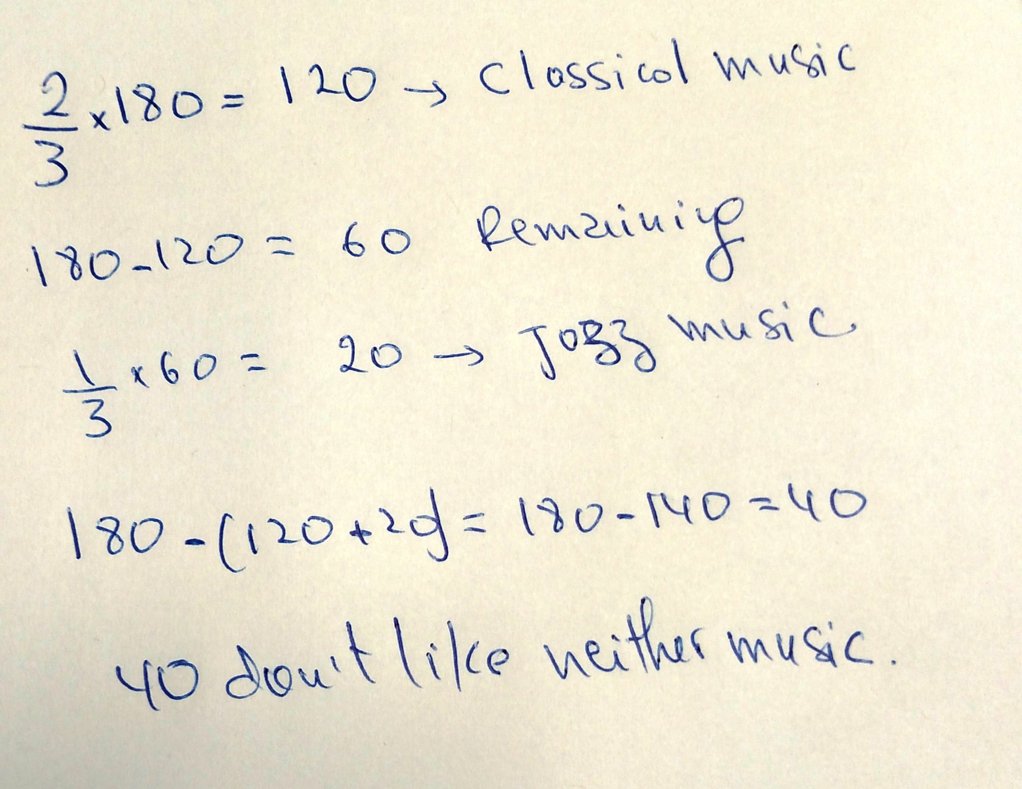 2/3 x 180 = 120 → Classical music
180 - 120 = 60 Remaining
1/3 x 60 = 20 → Jazz music
180 - (120 + 20) = 180 - 140 = 40
40 don't like neither music.